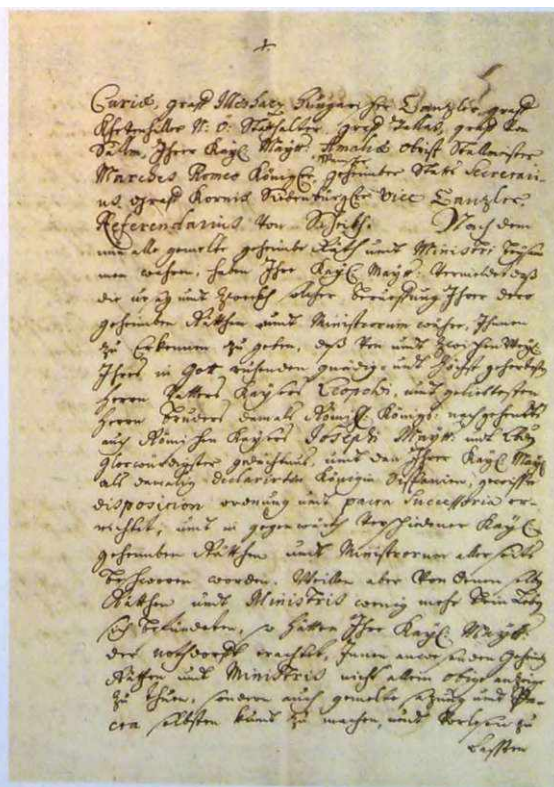 Curiæ, graff Illeshazy Hungarischer Cantzler, graff
Khevenhiller N: Ö: Statthalter, graff Gallas, graff von
Salm, Ihrer Kayl: Mayt: Amaliæ Obrist Stallmeister
Marches Romeo Königl: geheimber Stats Secretari-
us, graff Kornis Sibenbürgl: Vice Cantzler
Referendarius von Schickh. Nach dem
nun alle gemelte geheimbe Räth und Ministri beysam
men wahren, haben Ihre Kayl: Mayt: vermeldet daß
die ursag und zweckh solcher beruffung Ihrer dero
geheimben Räthen und Ministrorum währe, Ihnen
zu erkennen zu geben, daß von und zwischen Weyl:
Ihres in Gott ruhenden gnädig- und höchst geehrtesten
Herrn Vatters Kaysers Leopoldi, und geliebtesten
Herrn Bruders damals Römisch: Königs: nachgehends
auch Römischen Kaysers Josephi Mayt: und Lbd:
glorwürdigster gedächtnus, und dan Ihrer Kayl: Mayt:
als damalig declarirten Königs in Hispanien, gewisse
disposition ordnung und pacta successoria er-
richtet, und in gegenwarth verschiedener Kayl:
geheimben Räthen und Ministrorum allerseits
beschworen worden. Weillen aber von denen selbig
Räthen und Ministris wenig mehr beym Leben
sich befündeten, so hätten Ihre Kayl: Mayt:
der nothdurfft erachtet, Ihnen anwesenden geheimb:
Räthen und Ministris nicht allein obige anzeige
zu thuen, sondern auch gemelte satzung und Pa-
cta selbsten kund zu machen, und vorlesen zu
lassen